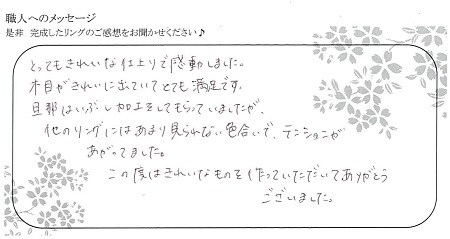 職人へのメッセージ
是非 完成したリングのご感想をお聞かせください♪
とってもきれいな仕上りで感動しました。
木目がきれいに出ていてとても満足です。
旦那はいぶし加工をしてもらっていましたが、
他のリングにはあまり見られない色合いで、テンションが
あがってました。
この度はきれいなものを作っていただいてありがとう
ございました。